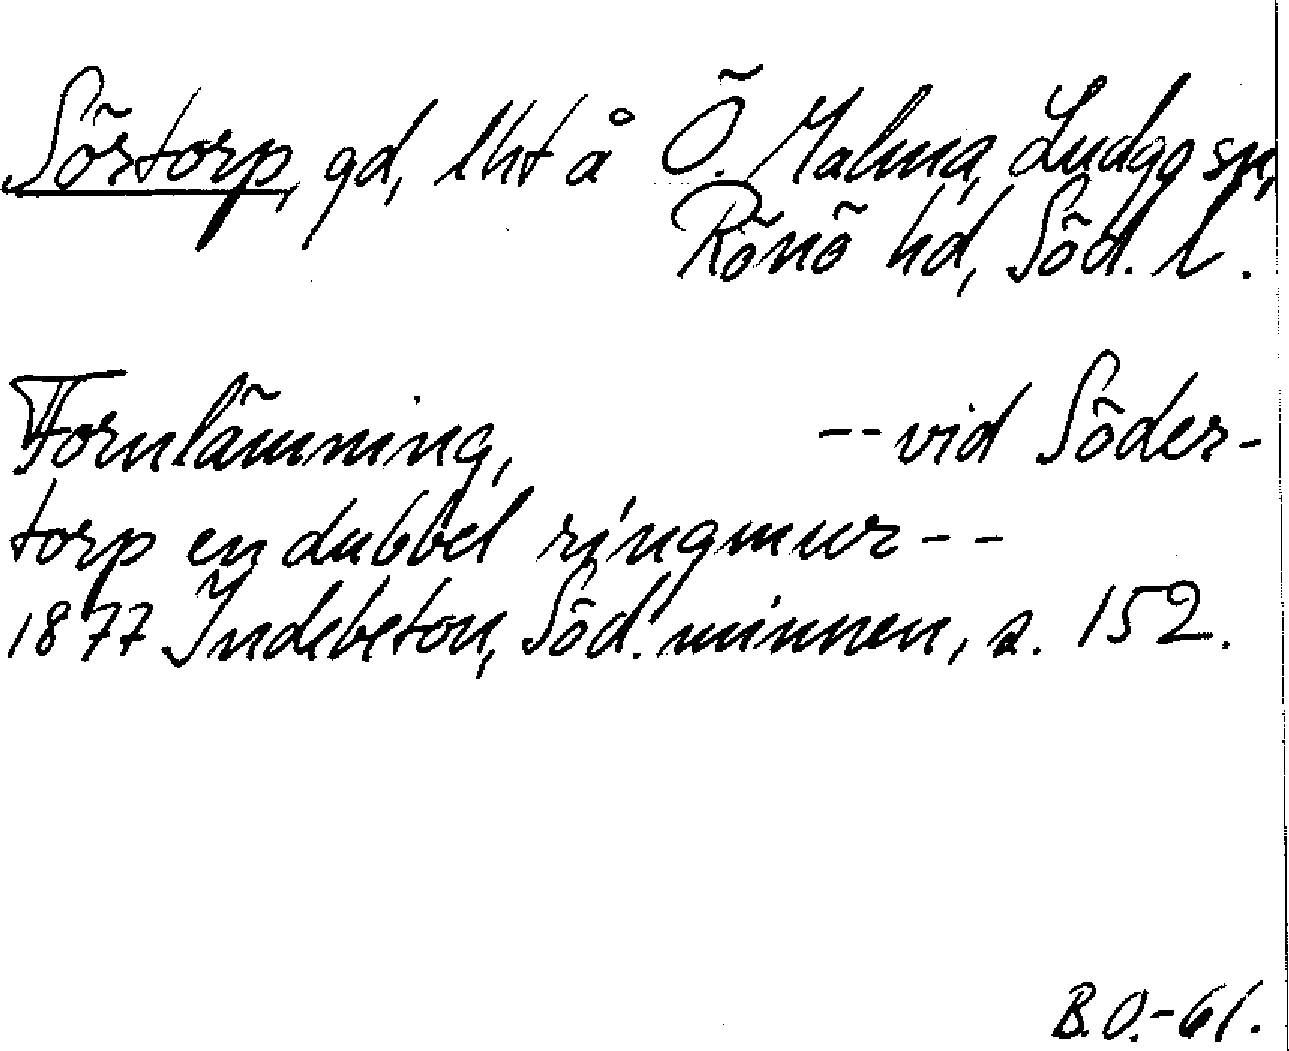 Sörtorp, gd, lht å Ö. Malma, Ludgo sn,
Rönö hd, Söd. l.
Fornlämning, -- vid Söder-
torp en dubbel ringmur --
1877 Indebetou, Söd. minnen, s. 152.
B.O.-61.